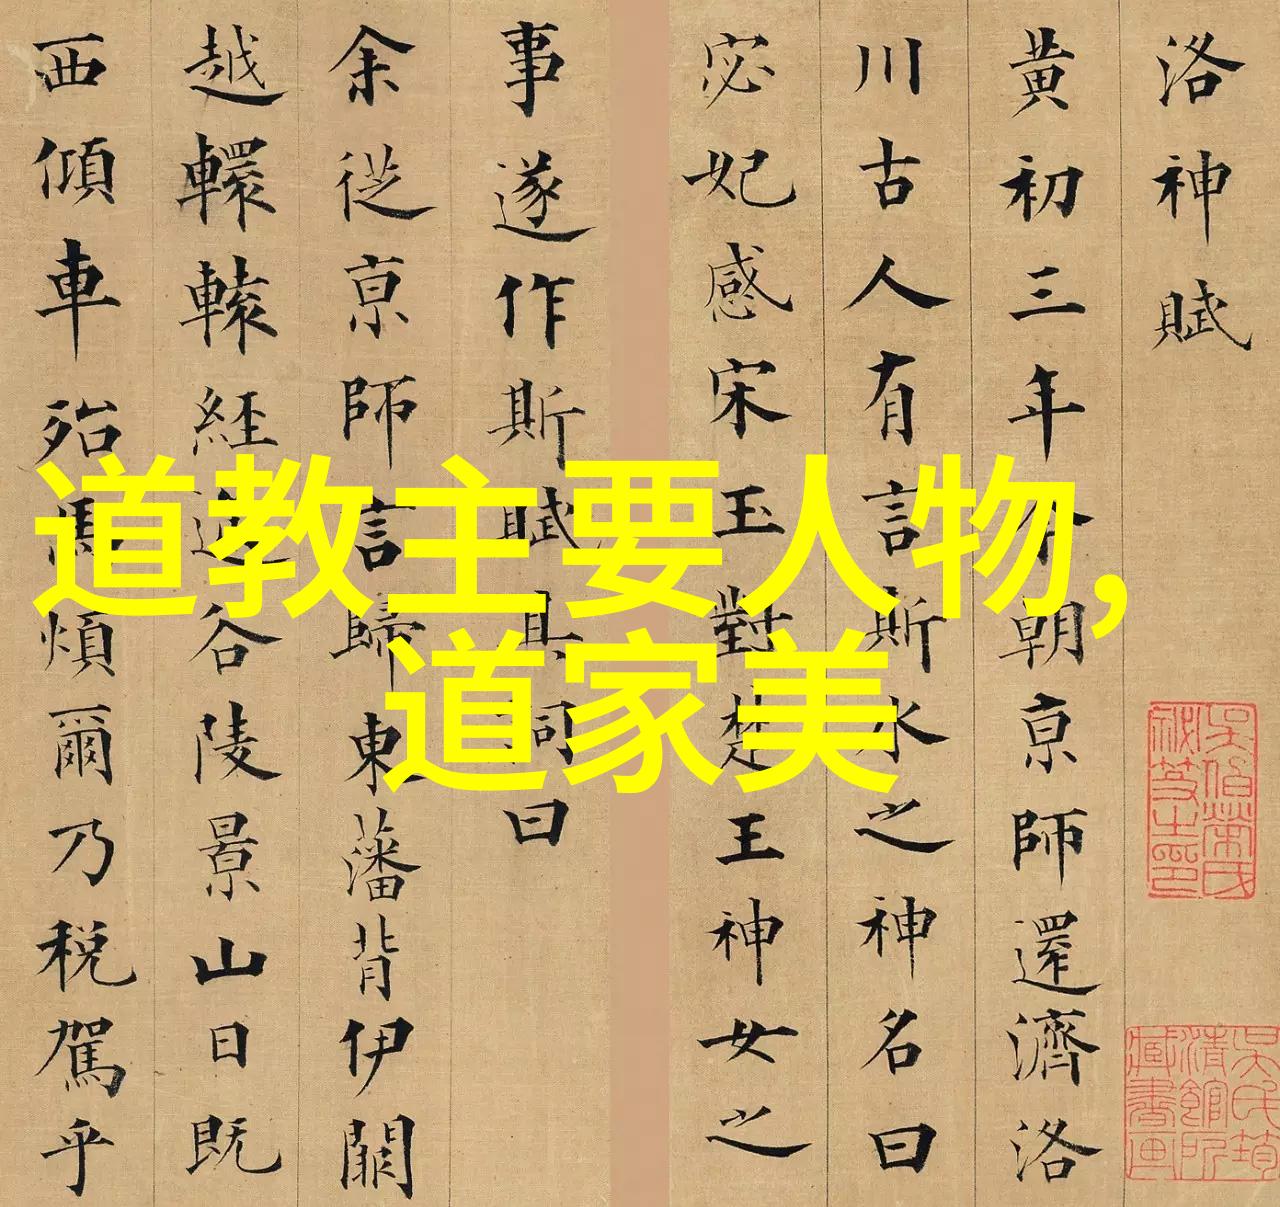 道教主要人物,
道家美
洛神賦
黃初三年余朝京師還濟洛
川古人有言斯水之神名曰
宓妃感宋玉對楚王神女之
事遂作斯賦其詞曰
余從京師言歸東藩背伊闕
越轘轅經通谷陵景山日既
西傾車殆馬煩爾乃稅駕乎